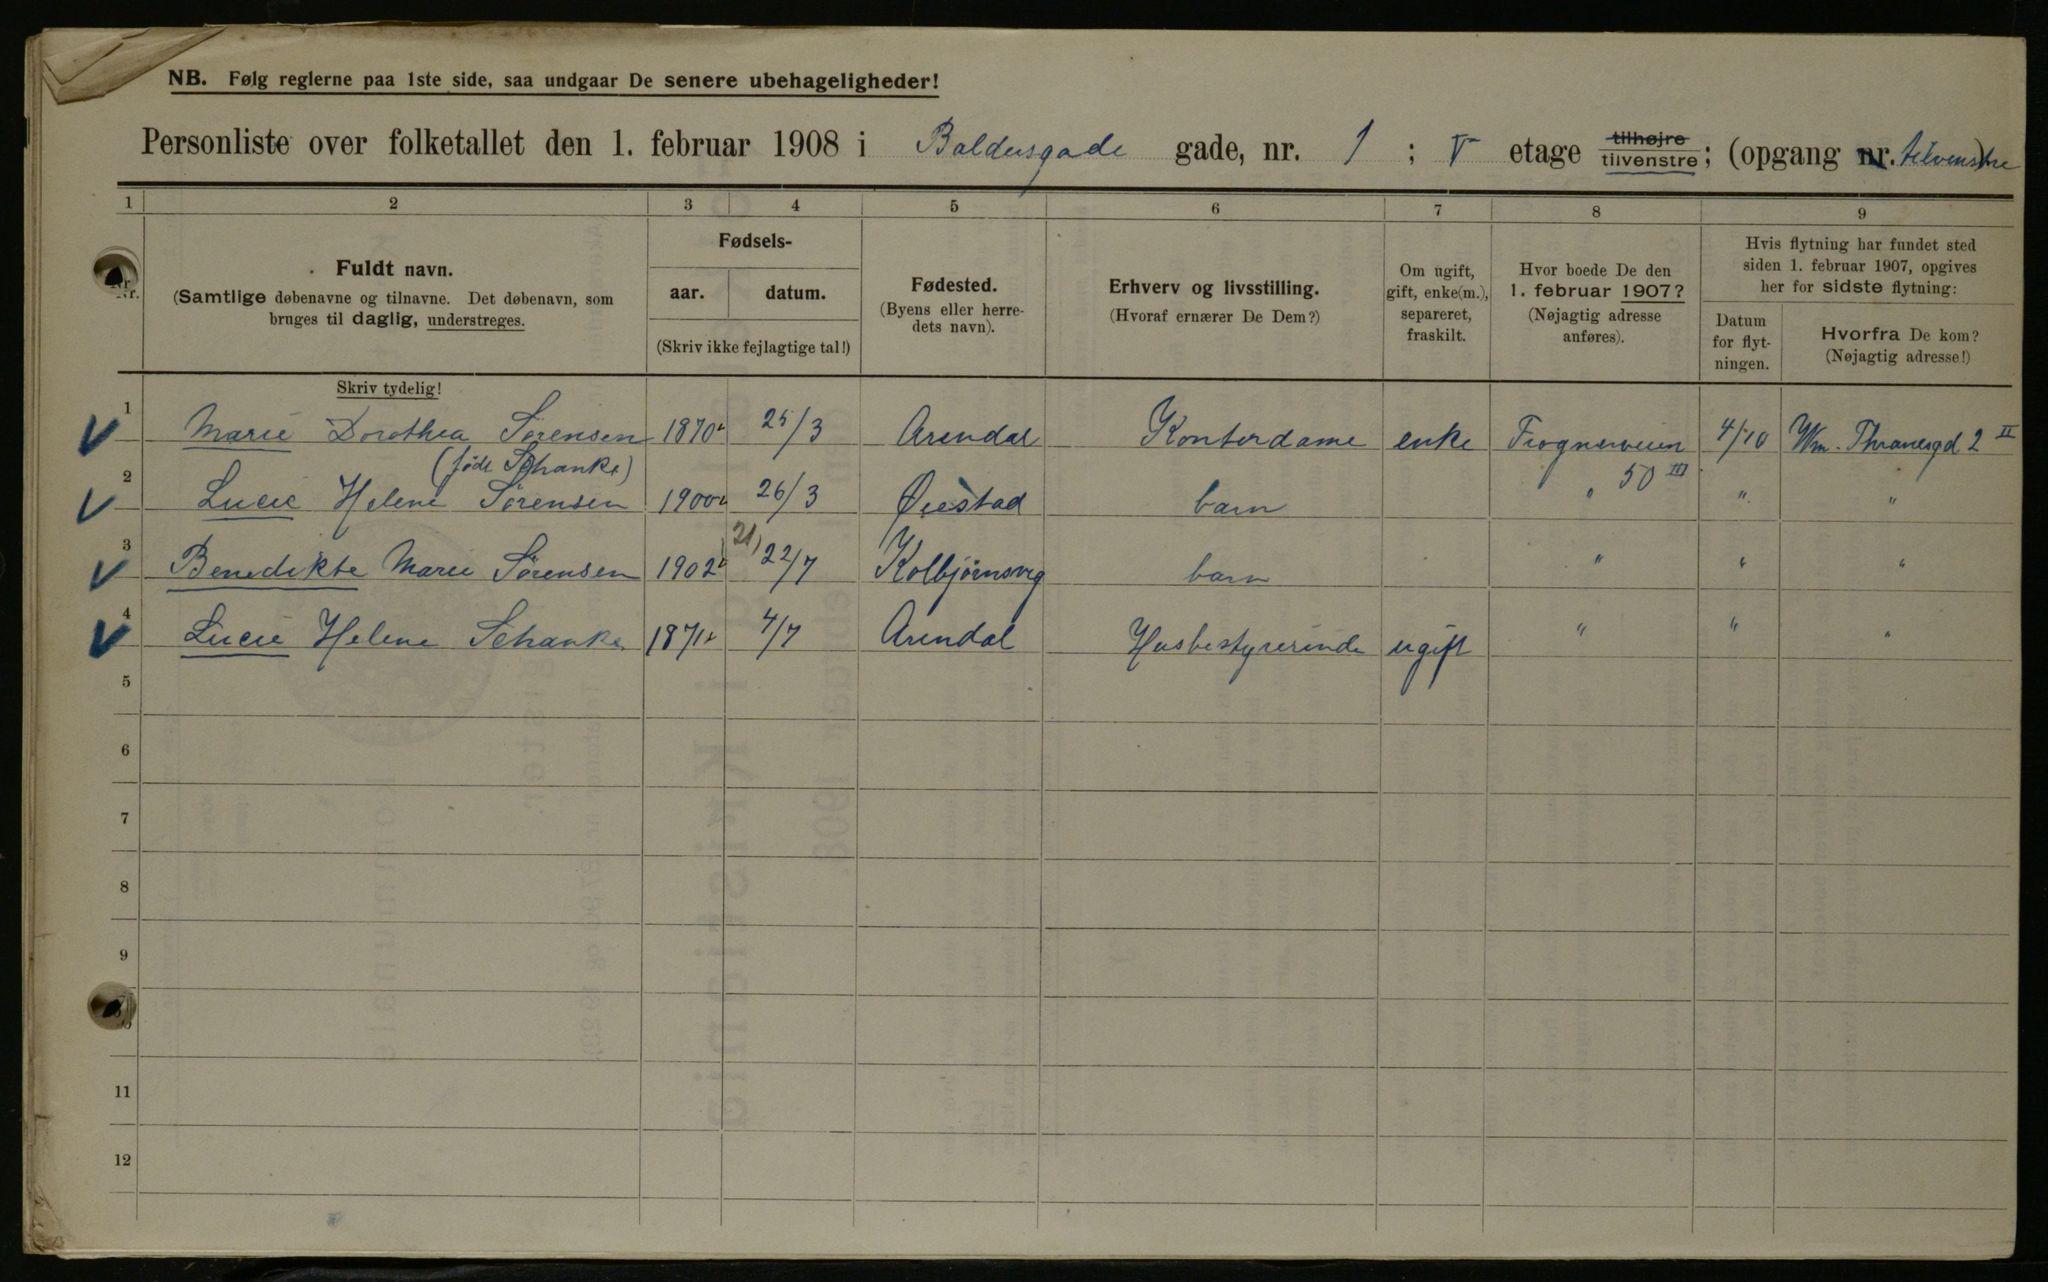 NB. Følg reglerne paa 1ste side, saa undgaar De senere ubehageligheder!
Personliste over folketallet den 1. februar 1908 i Baldersgade gade, nr. 1 ; V etage tilhøjre tilvenstre ; (opgang nr. tilvenstre)
1 2 3 4 5 6 7 8 9
Nr.
Fuldt navn.
(Samtlige døbenavne og tilnavne. Det døbenavn, som
bruges til daglig, understreges.
Skriv tydelig!
Fødsels-
aar. datum.
(Skriv ikke fejlagtige tal!)
Fødested.
(Byens eller herre-
dets navn).
Erhverv og livsstilling.
(Hvoraf ernærer De Dem?)
Om ugift,
gift, enke(m.),
separeret,
fraskilt.
Hvor boede De den
1. februar 1907?
(Nøjagtig adresse
anføres).
Hvis flytning har fundet sted
siden 1. februar 1907, opgives
her for sidste flytning:
Datum
for flyt-
ningen.
Hvorfra De kom?
(Nøjagtig adresse!)
1 Marie Dorothea Sørensen 1870 25/3 Arendal Kontordame enke Frognerveien 4/10 Wm. Thranesgd 2 II
(født Schanke) 50 III
2 Lucie Helene Sørensen 1900 26/3 Øiestad barn " " "
21)
3 Benedikte Marie Sørensen 1902 22/7 Kolbjørnsvig barn " " "
4 Lucie Helene Schanke 1871 4/7 Arendal Husbestyrerinde ugift " " "
5
6
7
8
9
11
12